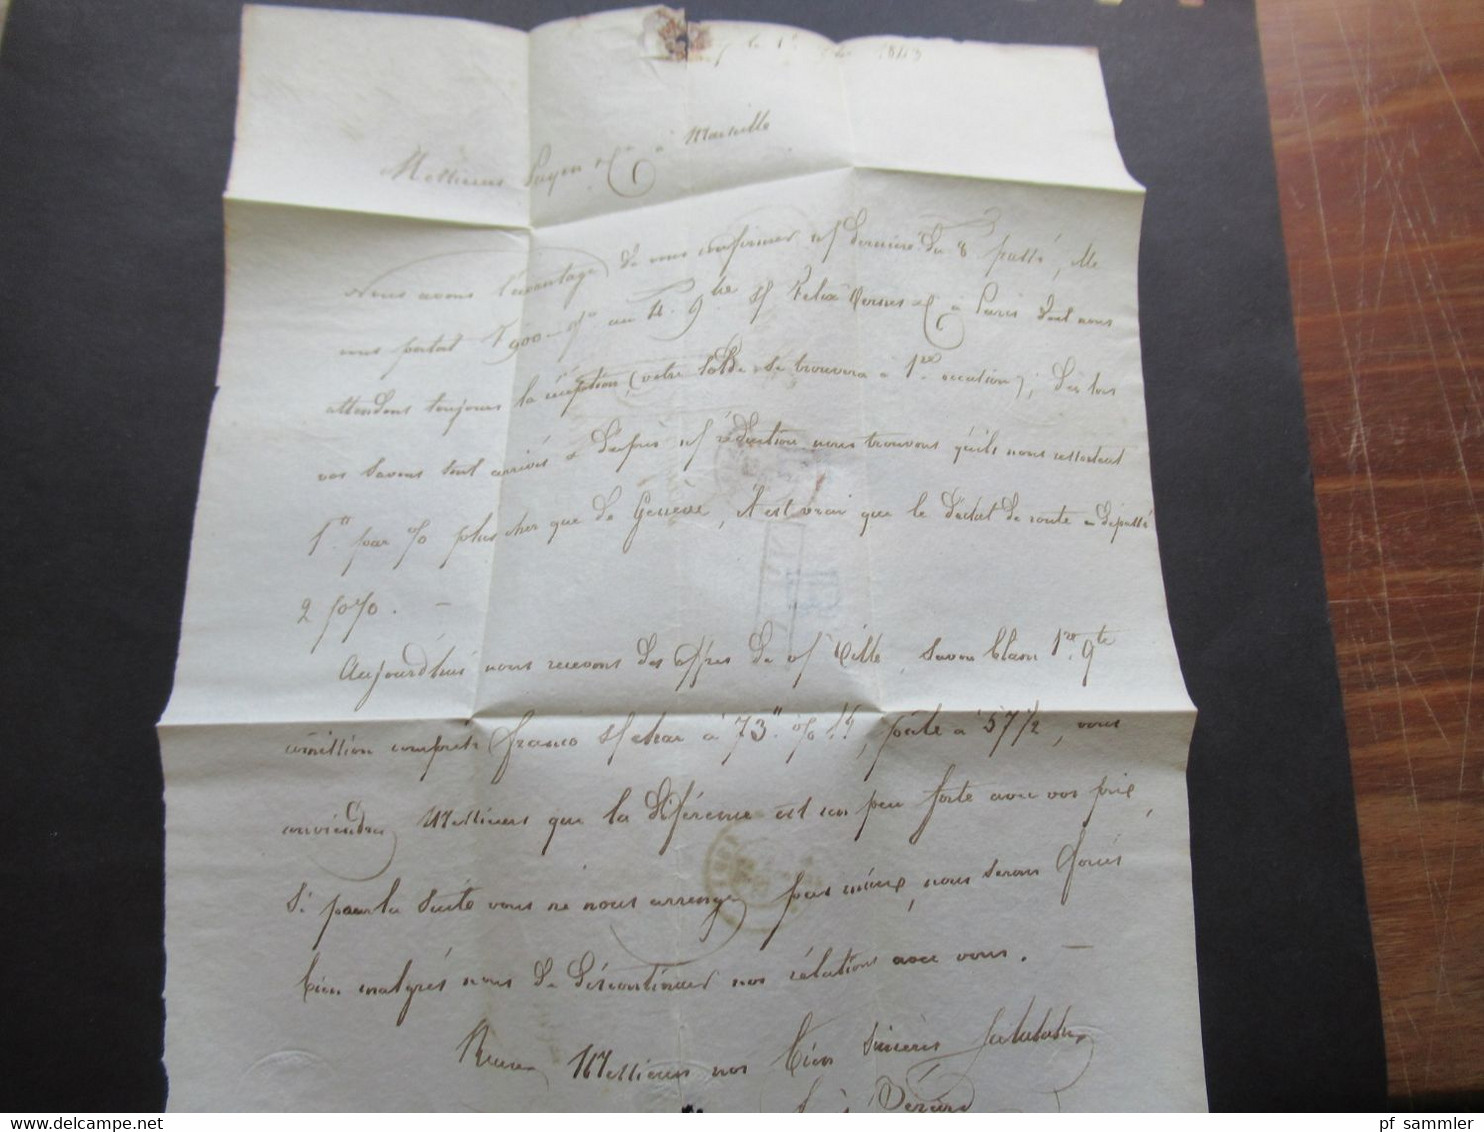 le 1er 1843
Messieurs Payen & Cie à Marseille
Nous avons l'avantage de vous confirmer n/ dernière du 8 passé, elle
vous portait F 900.– au 4. 9bre s/ Felix Vernes & C à Paris dont nous
attendons toujours la réception, (votre solde se trouvera à 1re occasion), Dès lors
vos savons sont arrivés & d'après n/ réduction nous trouvons qu'ils nous ressortent
1" pour % plus cher que de Genève, il est vrai que le déchet de route a dépassé
2 p%. –
Aujourd'hui nous recevons des offres de v/ Ville, savon blanc 1re qté
comission compris franco à 73" % , porté à 57 1/2, vous
conviendrez Messieurs que la différence est un peu forte avec vos prix,
Si pour la suite vous ne nous arrengez pas mieux, nous serons forcés
bien malgrés nous de discontinuer nos rélations avec vous. –
Recevez Messieurs nos bien sincères salutations
pf sammler